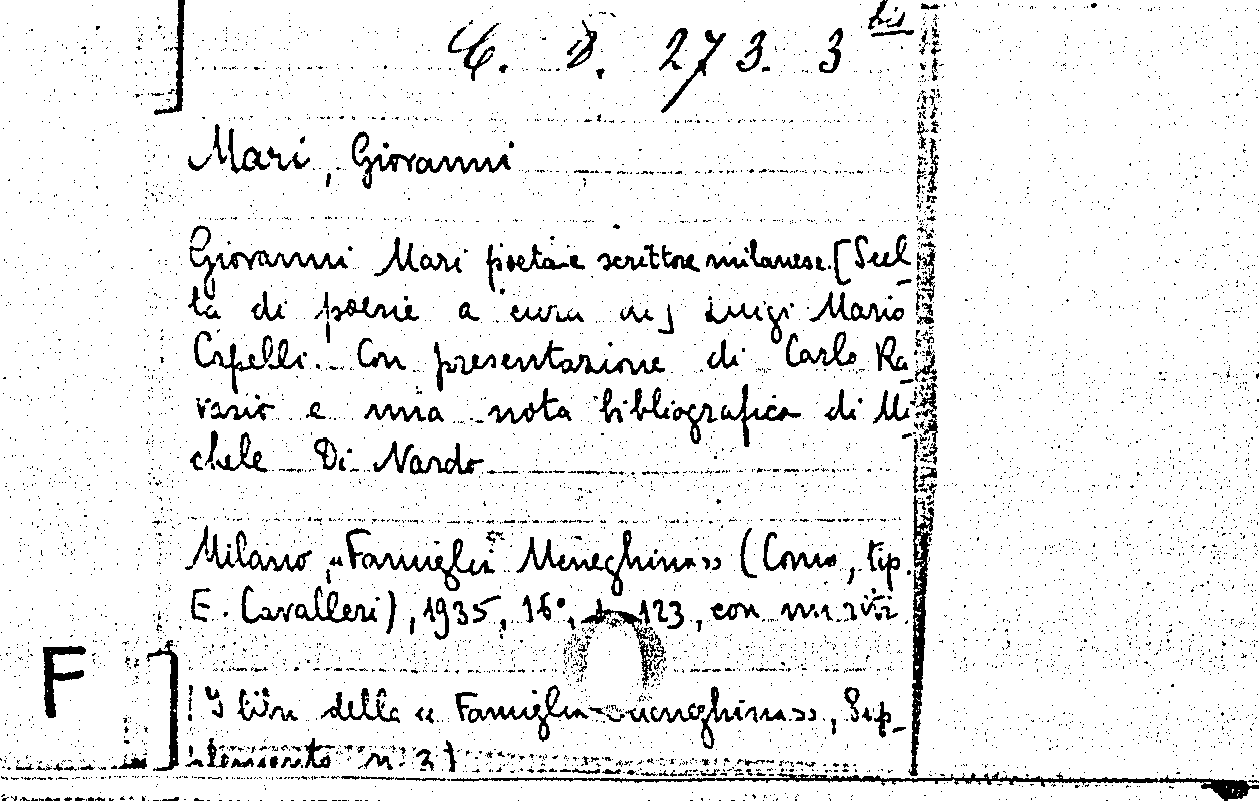 C. D. 273. 3 bis
Mari, Giovanni
Giovanni Mari poeta e scrittore milanese. [Scel-
ta di poesie a cura di] Luigi Mario
Capelli. Con presentazione di Carlo Ra-
vasio e una nota bibliografica di Mi-
chele Di Nardo
Milano, «Famiglia Meneghina» (Como, tip.
E. Cavalleri), 1935, 16°, p. 123, con
F
(I libri della «Famiglia Meneghina», Sup-
plemento n. 2)